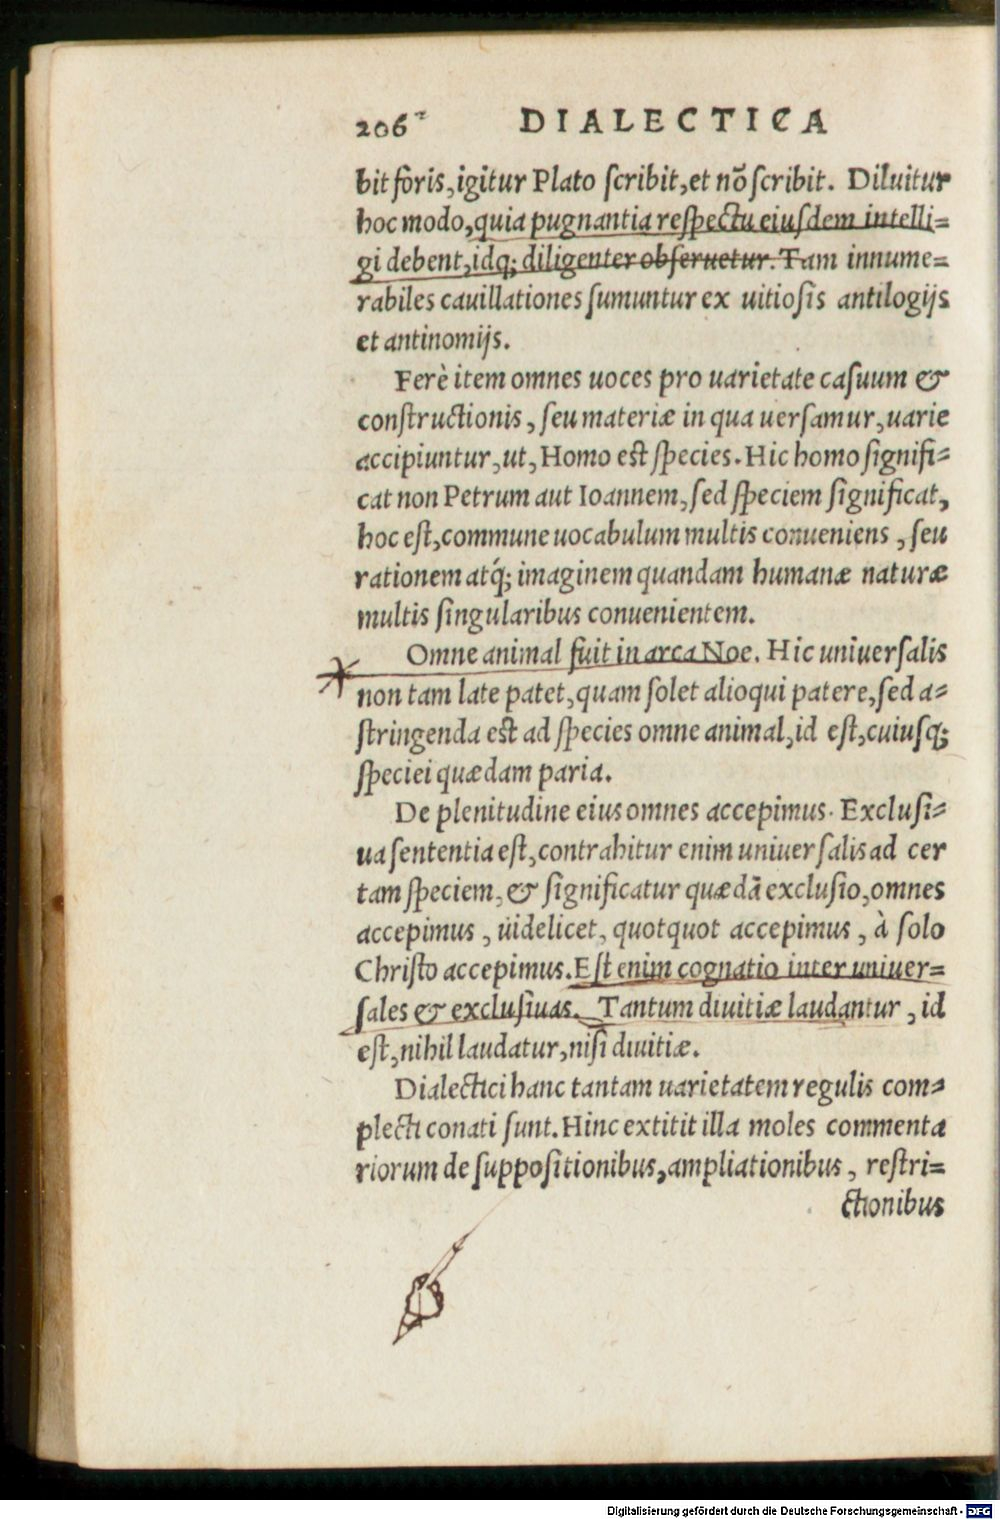 206 DIALECTICA
bit foris, igitur Plato scribit, et nõ scribit. Diluitur
hoc modo, quia pugnantia respectu eiusdem intelli=
gi debent, idq; diligenter obseruetur. Tam innume=
rabiles cauillationes sumuntur ex uitiosis antilogijs
et antinomijs.
Ferè item omnes uoces pro uarietate casuum &
constructionis, seu materiæ in qua uersamur, uarie
accipiuntur, ut, Homo est species. Hic homo signifi=
cat non Petrum aut Ioannem, sed speciem significat,
hoc est, commune uocabulum multis conueniens, seu
rationem atq́; imaginem quandam humanæ naturæ
multis singularibus conuenientem.
Omne animal fuit in arca Noe. Hic uniuersalis
non tam late patet, quam solet alioqui patere, sed a=
stringenda est ad species omne animal, id est, cuiusq;
speciei quædam paria.
De plenitudine eius omnes accepimus. Exclusi=
ua sententia est, contrahitur enim uniuersalis ad cer
tam speciem, & significatur quædã exclusio, omnes
accepimus, uidelicet, quotquot accepimus, à solo
Christo accepimus. Est enim cognatio inter uniuer=
sales & exclusiuas. Tantum diuitiæ laudantur, id
est, nihil laudatur, nisi diuitiæ.
Dialectici hanc tantam uarietatem regulis com=
plecti conati sunt. Hinc extitit illa moles commenta
riorum de suppositionibus, ampliationibus, restri=
ctionibus
Digitalisierung gefördert durch die Deutsche Forschungsgemeinschaft - DFG